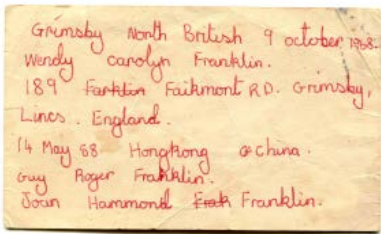 Grimsby North British 9 october 1968.
Wendy carolyn Franklin.
189 Farklin Fairmont RD. Grimsby,
Lincs. England.
14 May 88 Hongkong @ China.
Guy Roger Franklin.
Joan Hammond Frak Franklin.